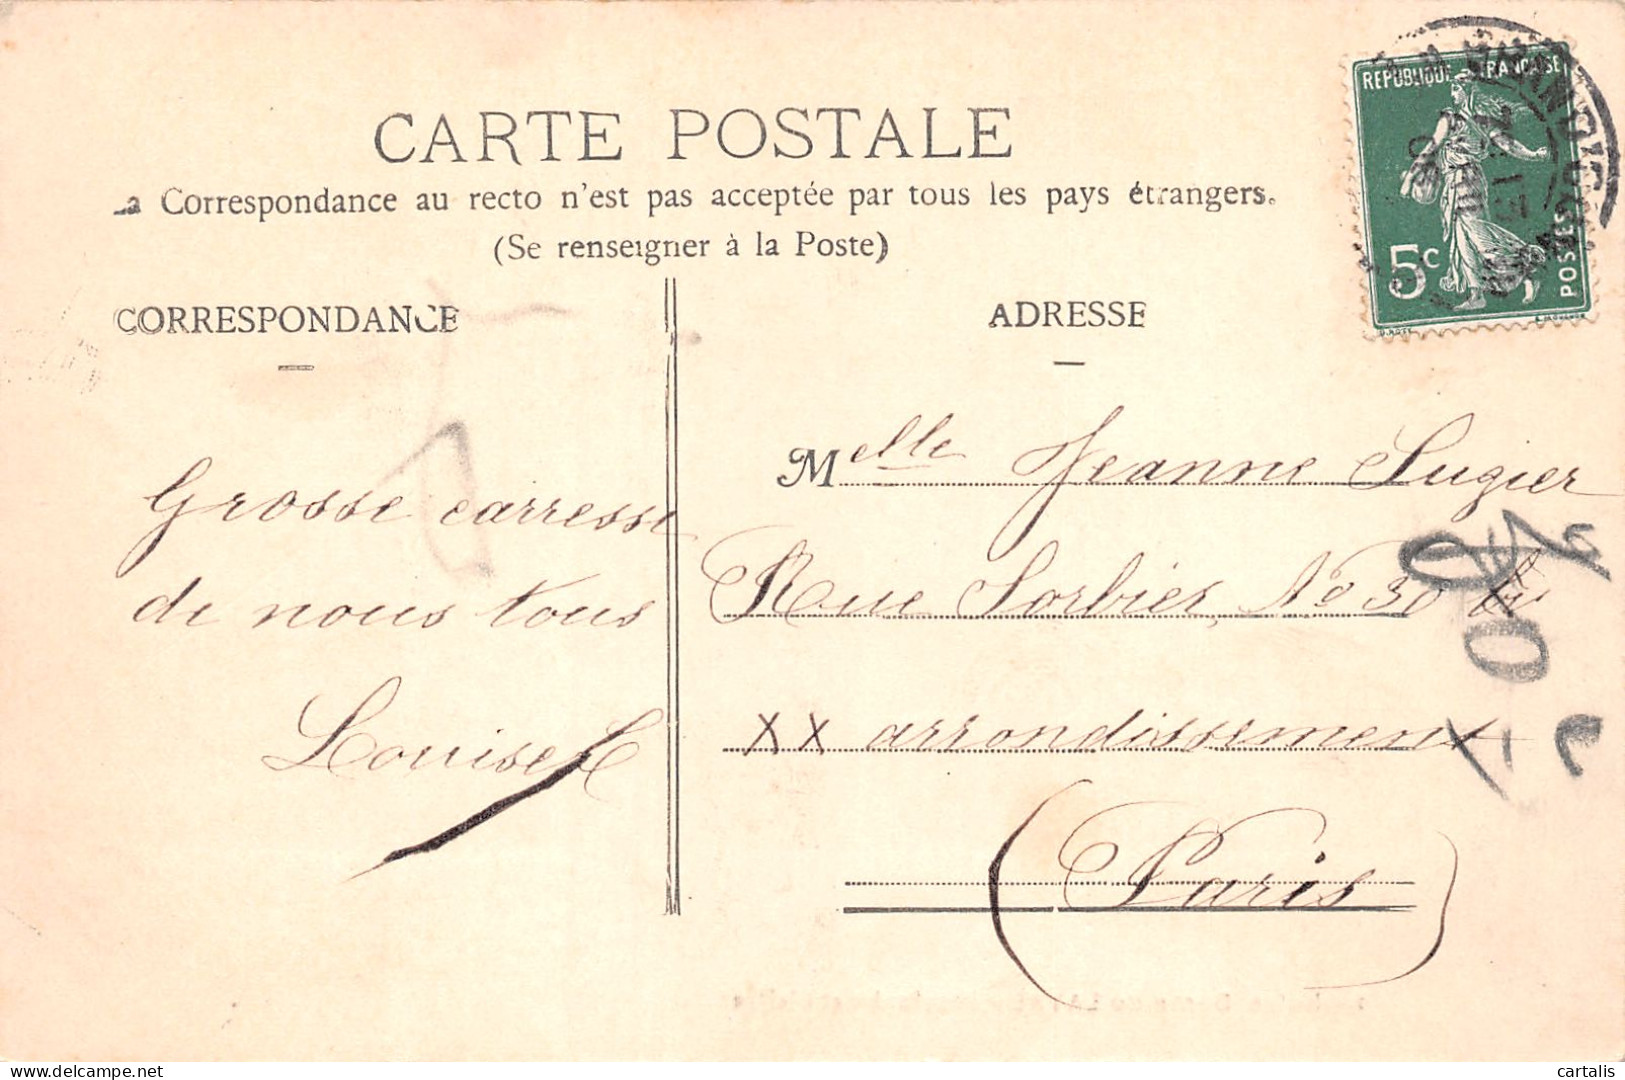 CARTE POSTALE
La Correspondance au recto n'est pas acceptée par tous les pays étrangers.
(Se renseigner à la Poste)
CORRESPONDANCE
ADRESSE
REPUBLIQUE FRANÇAISE
5c
POSTES
Grosse carresse
de nous tous
Louise
Melle Jeanne Sugier
Rue Sorbier No 30 bis
XX arrondissement
(Paris)
delcampe.net
cartalis